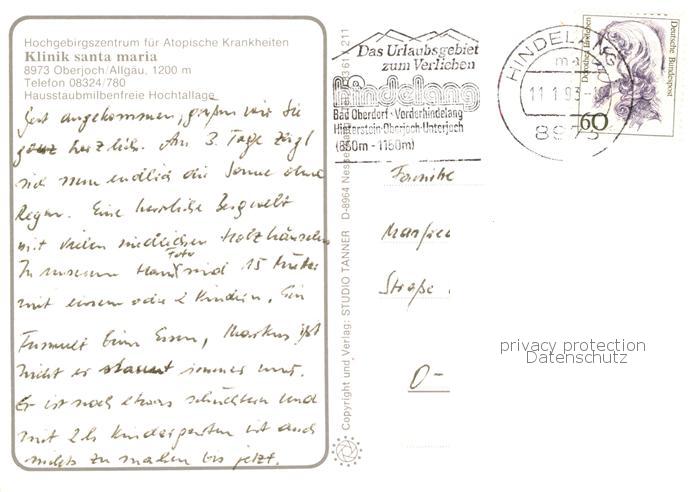 Hochgebirgszentrum für Atopische Krankheiten
Klinik santa maria
8973 Oberjoch/Allgäu, 1200 m
Telefon 08324/780
Hausstaubmilbenfreie Hochtallage
Gut angekommen, grüßen wir Sie
ganz herzlich. Am 3. Tage zeigt
sich nun endlich die Sonne ohne
Regen. Eine herrliche Bergwelt
mit vielen niedlichen Holzhäuschen
In unserem Haus Foto sind 15 Mütter
mit einem oder 2 Kindern. Ein
Tumult beim Essen, Markus ißt
nicht er staunt immer nur.
Er ist noch etwas schüchtern und
mit 2 h Kindergarten ist auch
nichts zu machen bis jetzt.
Copyright und Verlag: STUDIO TANNER D-8964 211
Das Urlaubsgebiet
zum Verlieben
Hindelang
Bad Oberdorf-Vorderhindelang
Hinterstein-Oberjoch-Unterjoch
(850m - 1150m)
HINDELANG
11.1.93
8973
Deutsche Bundespost
60
Familie
Manfred
Straße
O-
privacy protection
Datenschutz